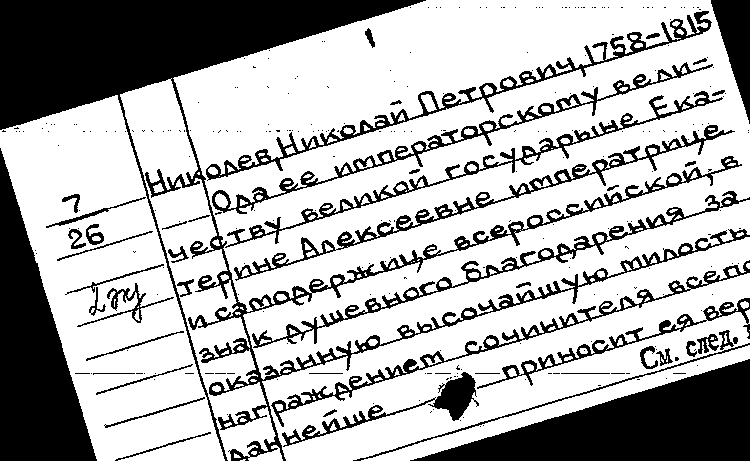 Николев, Николай Петрович, 1758-1815
7
26
Ода ее императорскому вели-
честву великой государыне Ека-
терине Алексеевне императрице
и самодержице всероссийской, в
знак душевного благодарения за
оказанную высочайшую милость
награждением сочинителя
даннейше приносит ея
См. след.